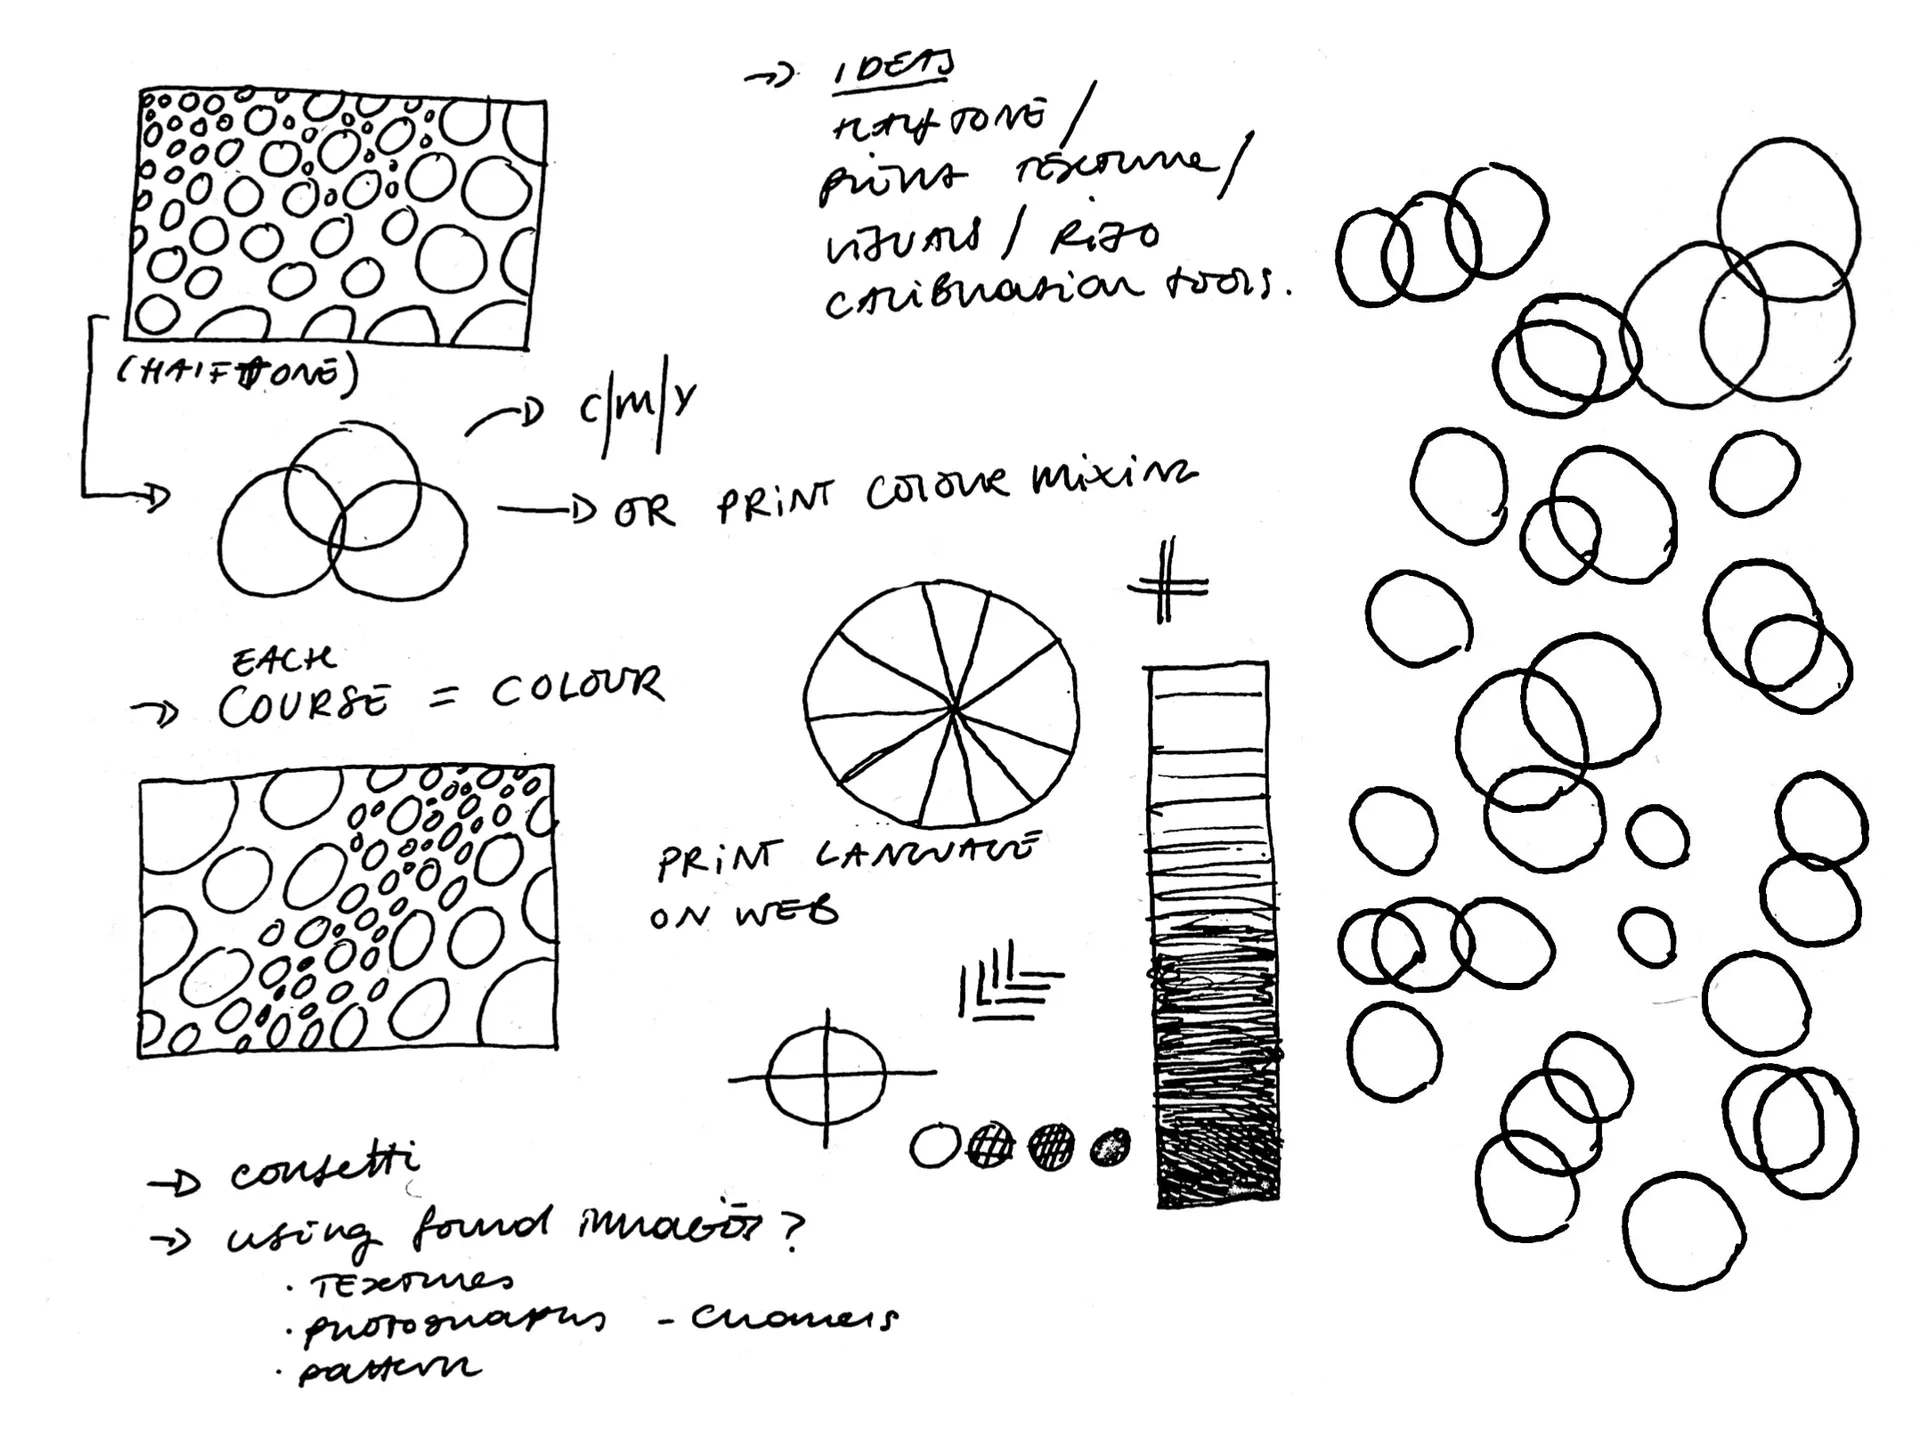 → IDEAS
HALFTONE /
PRINT TEXTURE /
VISUALS / RISO
CALIBRATION TOOLS.
(HALFTONE)
→ C/M/Y
→ OR PRINT COLOUR MIXING
EACH
→ COURSE = COLOUR
PRINT LANGUAGE
ON WEB
→ confetti
→ using found images?
· TEXTURES
· photographs -
· pattern